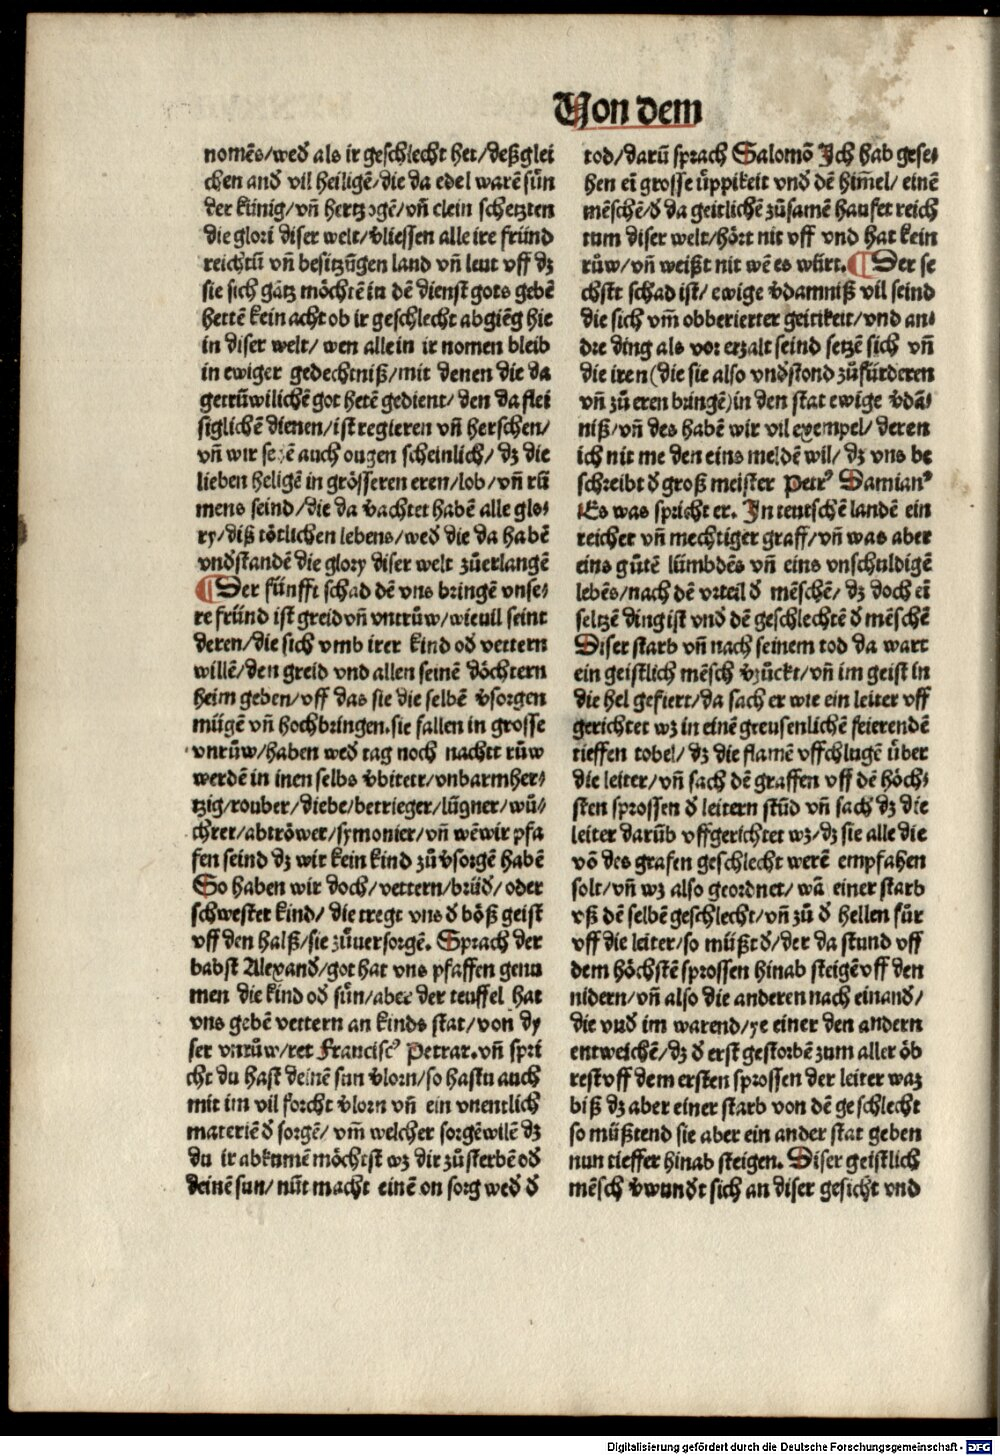 Von dem
nomēs/wed̄ als ir geschlecht het/deßglei
chen and̄ vil heiligē/die da edel warē sün
der künig/vn̄ hertzogē/vn̄ clein schetzten
die glori diser welt/v̄liessen alle ire fründ
reichtū vn̄ besitzūgen land vn̄ leut vff dz
sie sich gātz möchtē in dē dienst gots gebē
hettē kein acht ob ir geschlecht abgiēg hie
in diser welt/ wen allein ir nomen bleib
in ewiger gedechtniß/mit denen die da
getrüwilichē got hetē gedient/den da flei
siglichē dienen/ist regieren vn̄ herschen/
vn̄ wir sezē auch ougen scheinlich/ dz die
lieben heligē in grösseren eren/lob/vn̄ rū
mens seind/die da v̄achtet habē alle glo⸗
ry/diß tötlichen lebens/wed̄ die da habē
vnd̄standē die glory diser welt zůerlangē
¶Der fünfft schad dē vns bringē vnse⸗
re fründ ist greid vn̄ vntrüw/wieuil seint
deren/die sich vmb irer kind od̄ vettern
willē/den greid vnd allen seinē döchtern
heim geben/vff das sie die selbē v̄sorgen
mügē vn̄ hochbringen.sie fallen in grosse
vnrüw/haben wed̄ tag noch nachtt rüw
werdē in inen selbs v̄bitert/vnbarmher⸗
tzig/rouber/diebe/betrieger/lügner/wü⸗
chrer/abtröwer/symonier/vn̄ wē wir pfa
fen seind dz wir kein kind zů v̄sorgē habē
So haben wir doch/vettern/brüd̄/oder
schwester kind/ die tregt vns d̄ böß geist
vff den halß/sie zůuersorgē. Sprach der
babst Alexand̄/got hat vns pfaffen genu
men die kind od̄ sün/aber der teuffel hat
vns gebē vettern an kinds stat/von dy
ser vnrüw/ret Francisc⁹ Petrar.vn̄ spri
cht du hast deinē sun v̄lorn/so hastu auch
mit im vil forcht v̄lorn vn̄ ein vnentlich
materiē d̄ sorgē/ vm̄ welcher sorgē wilē dz
du ir abkumē möchtst wz dir zů sterbē od̄
deinē sun/ nüt macht einē on sorg wed̄ d̄
tod/darū sprach Salomō Ich hab gese⸗
hen eī grosse üppikeit vnd̄ dē him̄el/ einē
mēschē/d̄ da geitlichē zůsamē haufet reich
tum diser welt/hört nit vff vnd hat kein
růw/vn̄ weißt nit wē es würt. ¶Der se
chstt schad ist/ ewige v̄damniß vil seind
die sich vm̄ obberierter geitikeit/vnd an⸗
dre ding als vor erzalt seind setzē sich vn̄
die iren(die sie also vnd̄stond zůfürderen
vn̄ zů eren bringē)in den stat ewige v̄dā⸗
niß/vn̄ des habē wir vil exempel/ deren
ich nit me den eins meldē wil/ dz vns be
schreibt d̄ groß meister Petr⁹ Damian⁹
Es was spricht er. In teutschē landē ein
reicher vn̄ mechtiger graff/vn̄ was aber
eins gůtē lümbdēs vn̄ eins vnschuldigē
lebēs/nach dē vrteil d̄ mēschē/ dz doch eī
seltzē ding ist vnd̄ dē geschlechtē d̄ mēschē
Diser starb vn̄ nach seinem tod da wart
ein geistlich mēsch v̄zückt/vn̄ im geist in
die hel gefiert/da sach er wie ein leiter vff
gerichtet wz in einē greusenlichē feierendē
tieffen tobel/ dz die flamē vffschlugē über
die leiter/vn̄ sach dē graffen vff dē höch⸗
sten sprossen d̄ leitern stūd vn̄ sach dz die
leiter darūb vffgerichtet wz/dz sie alle die
vō des grafen geschlecht werē empfahen
solt/vn̄ wz also geordnet/ wā einer starb
vß dē selbē geschlecht/vn̄ zů d̄ hellen für
vff die leiter/so müßt d̄/der da stund vff
dem höchstē sprossen hinab steigē vff den
nidern/vn̄ also die anderen nach einand̄/
die vnd̄ im warend/ye einer den andern
entweichē/dz d̄ erst gestorbē zum aller öb
rest vff dem ersten sprossen der leiter waz
biß dz aber einer starb von dē geschlecht
so müßtend sie aber ein ander stat geben
nun tieffer hinab steigen. Diser geistlich
mēsch v̄wundt sich an diser gesicht vnd
Digitalisierung gefördert durch die Deutsche Forschungsgemeinschaft - DFG